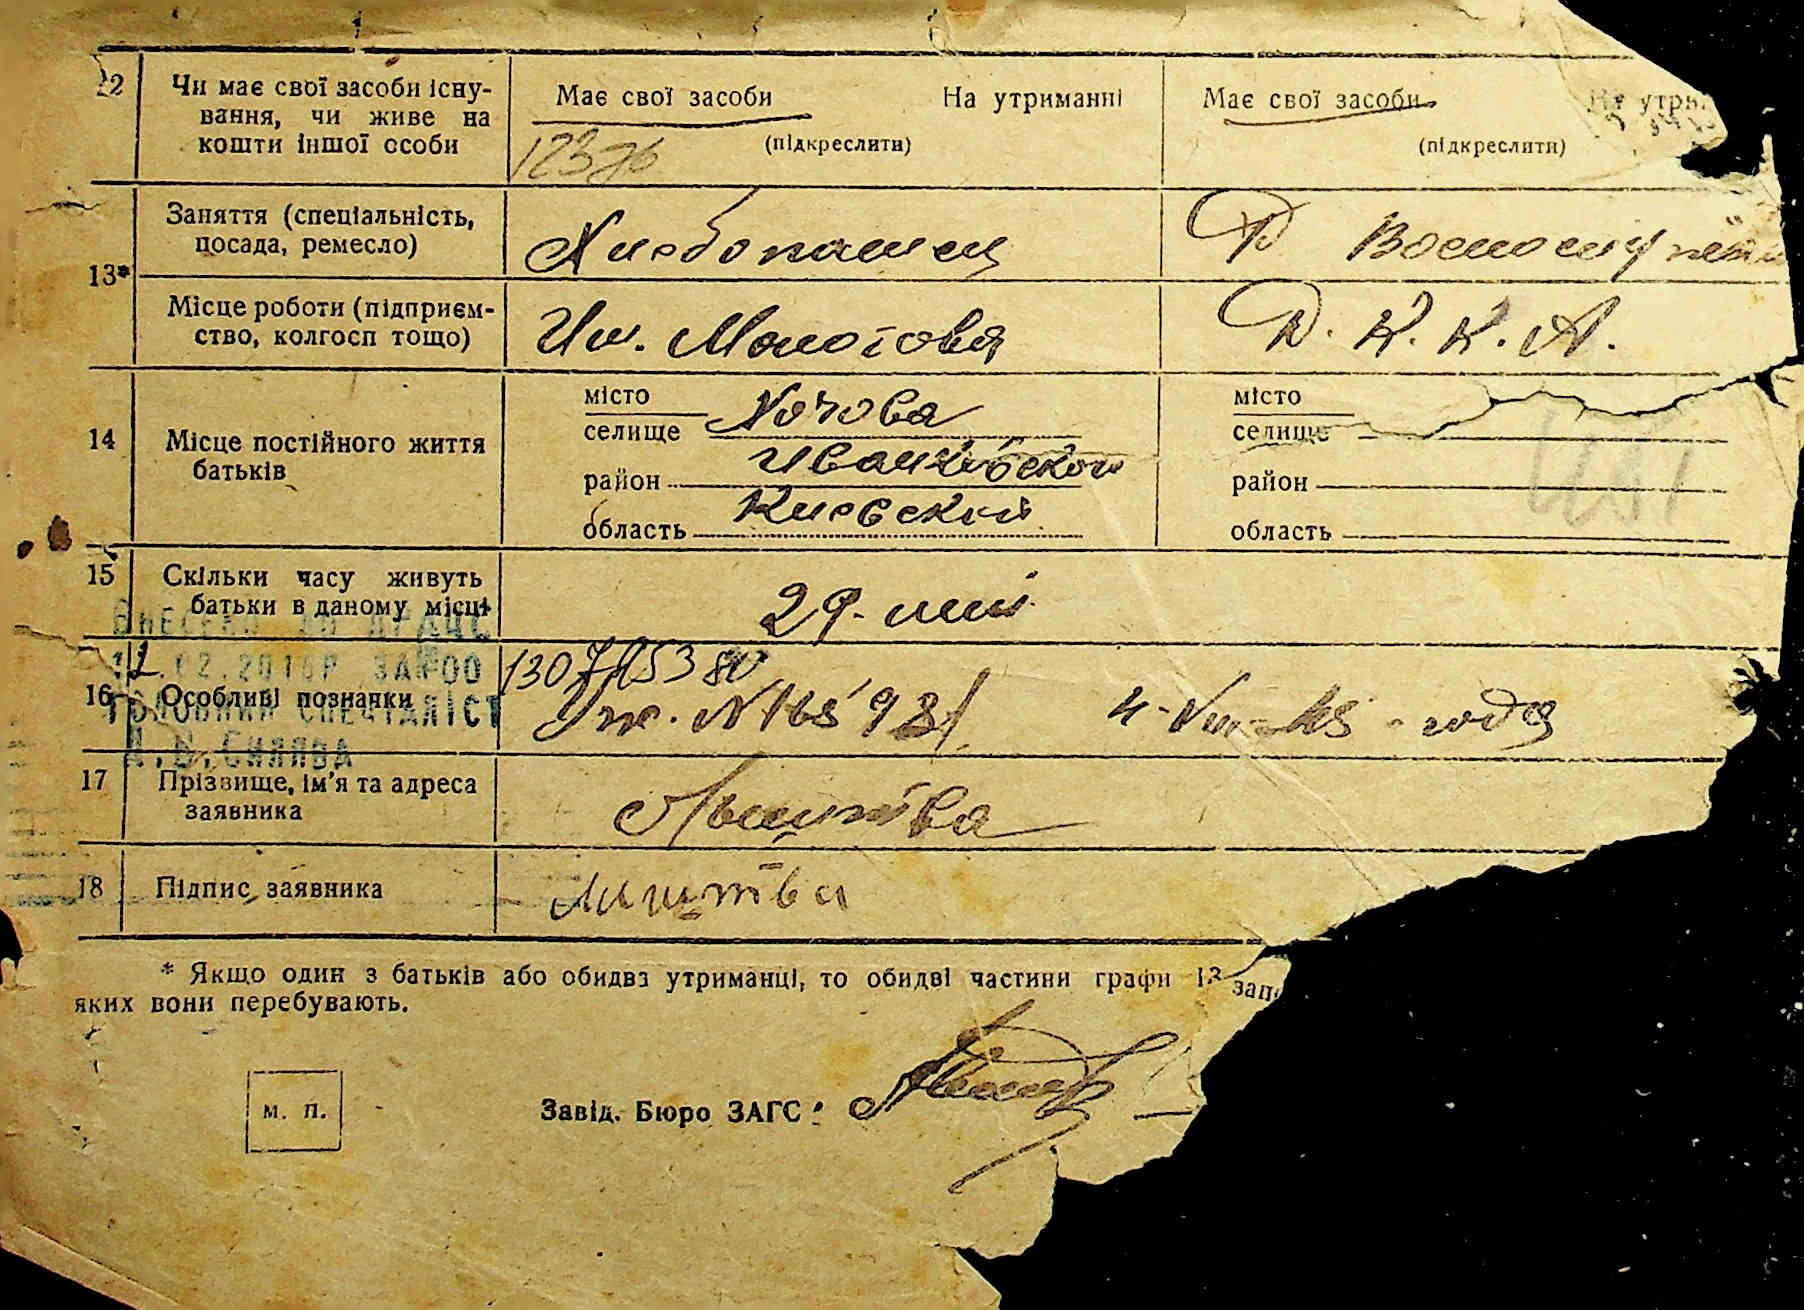 12 Чи має свої засоби існу- Має свої засоби На утриманні Має свої засоби На утри
вання, чи живе на
кошти іншої особи (підкреслити) (підкреслити)
12376
Заняття (спеціальність,
посада, ремесло) Хлебопашец Р Военослу
13*
Місце роботи (підприєм-
ство, колгосп тощо) Им. Молотова Р. К. К. А.
14 Місце постійного життя
батьків
місто місто
селище селище
район Иванківской район
область Киевской область
15 Скільки часу живуть
батьки в даному місці 29. лет
Внесено до ДРАЦС
.02.2016р. ЗА №00
Головний спеціаліст
16 Особливі позначки
4-VIII-45-года
17 Прізвище, ім'я та адреса
заявника
18 Підпис заявника
* Якщо один з батьків або обидва утриманці, то обидві частини графи 13 запо
яких вони перебувають.
м. п. Завід. Бюро ЗАГС: